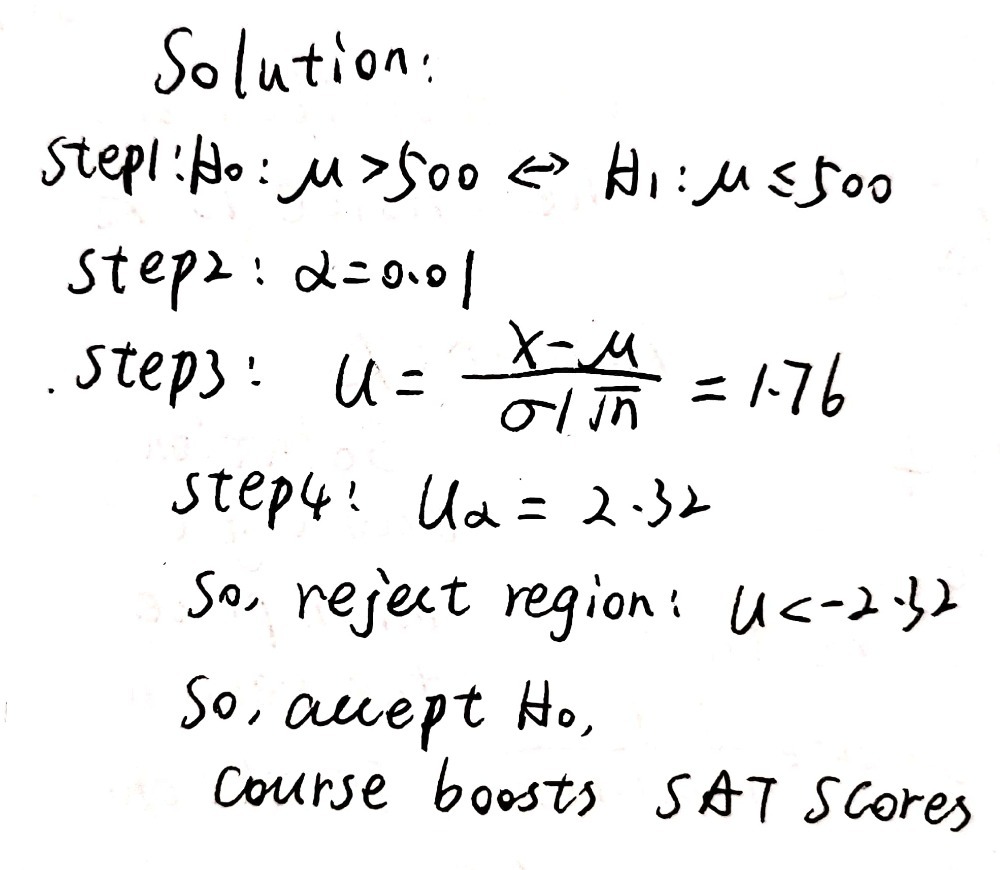 Solution:
step1: H₀: μ>500 ⇔ H₁: μ≤500
step2: α=0.01
step3: U = (x-μ)/(σ/√n) = 1.76
step4: Uα = 2.32
So, reject region: U<-2.32
So, accept H₀,
course boosts SAT scores